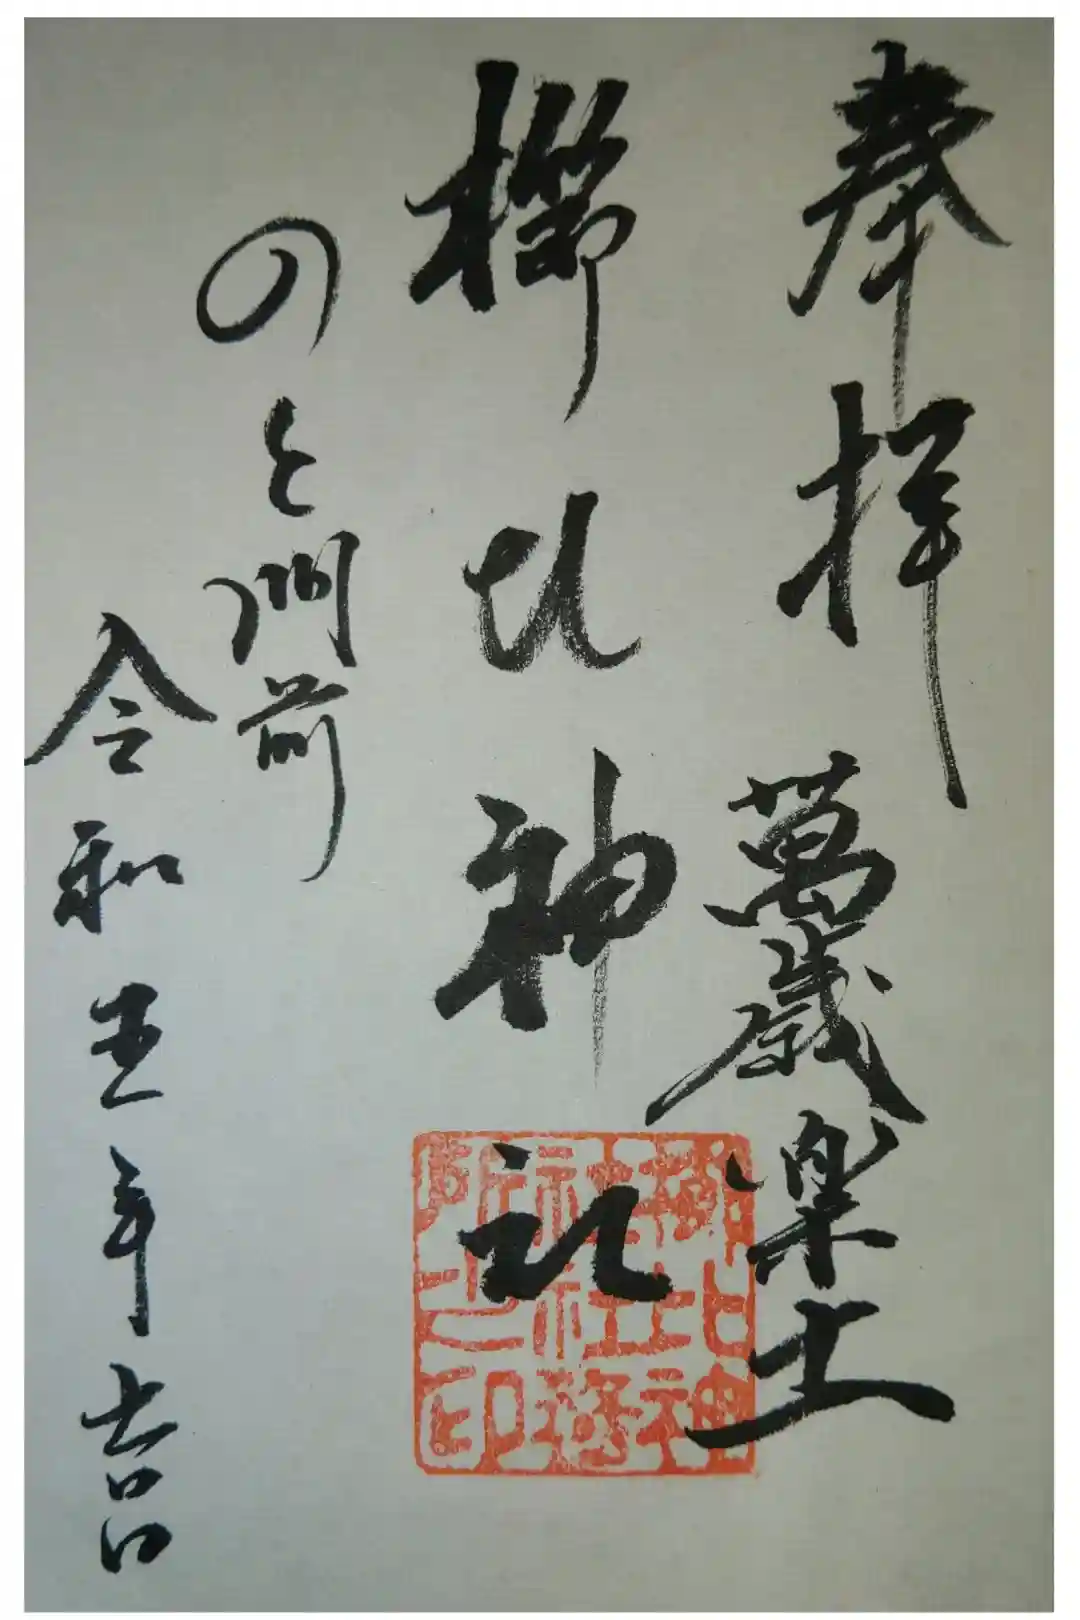 奉拝
萬歳楽土
櫛比神社
のと門前
令和五年吉日
櫛比神
社社務
所之印